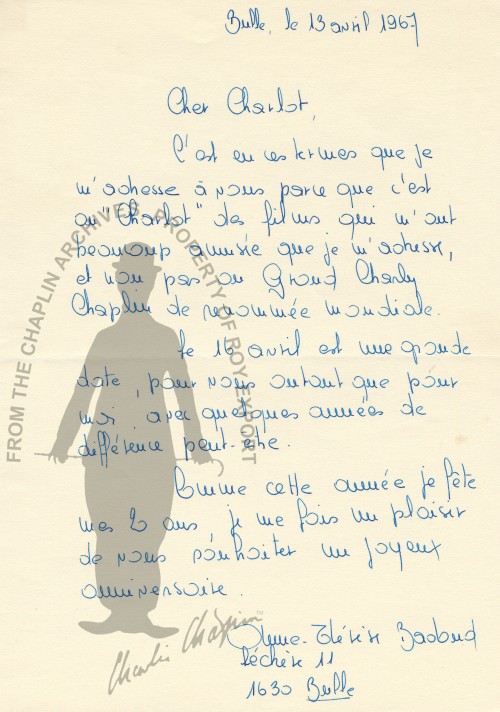 Bulle, le 13 avril 1967
Cher Charlot,
C'est en ces termes que je
m'adresse à vous parce que c'est
au "Charlot" des films qui m'ont
beaucoup amusée que je m'adresse,
et non pas au Grand Charly
Chaplin de renommée mondiale.
Le 16 avril est une grande
date, pour vous autant que pour
moi, avec quelques années de
différence peut-être.
Comme cette année je fête
mes 20 ans je me fais un plaisir
de vous souhaiter un joyeux
anniversaire.
Anne-Thérèse
Léchère 11
1630 Bulle
FROM THE CHAPLIN ARCHIVES - PROPERTY OF ROY EXPORT
Charlie Chaplin